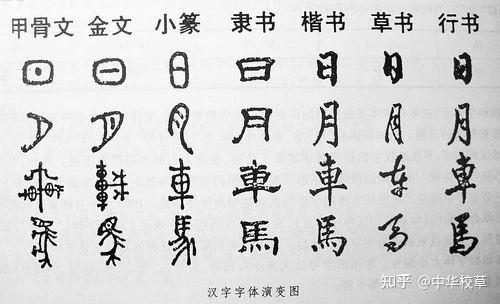 甲骨文 金文 小篆 隶书 楷书 草书 行书
日 日 日 日 日 日 日
月 月 月 月 月 月 月
車 車 車 車 車 车 車
馬 馬 馬 馬 馬 马 馬
汉字字体演变图
知乎 @中华校草